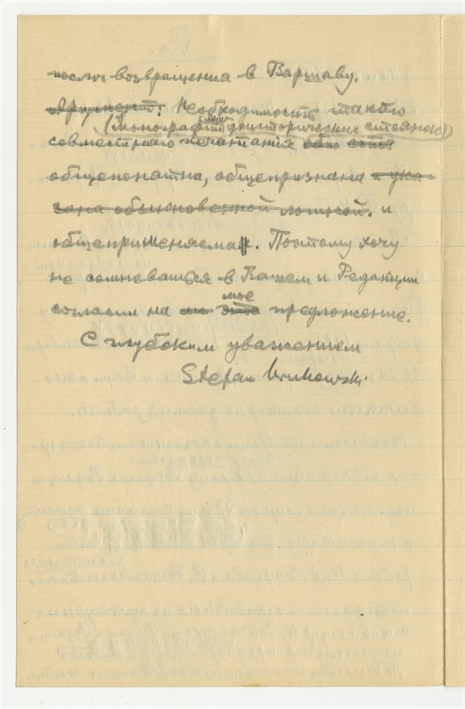 после возвращения в Варшаву.
Аргумент: Необходимость такого
(монографий доисторических стоянок)
совместного печатания
общепонятна, общепризнана и ука-
зана обыкновенной логикой. и
общеприменяема. Поэтому хочу
не сомневаться в Вашем и Редакции
мое
согласии на предложение.
С глубоким уважением
Stefan Krukowski.